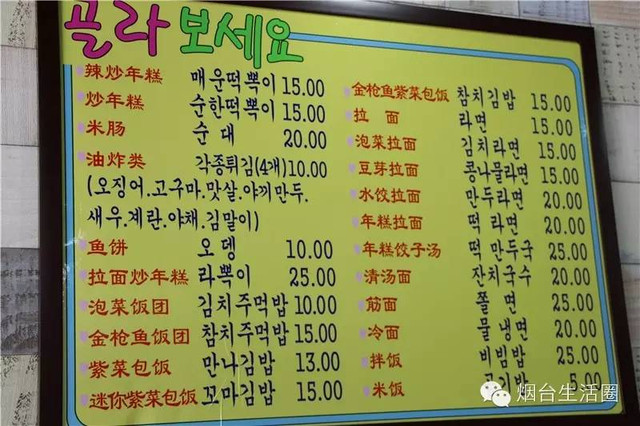 골라 보세요
辣炒年糕 매운떡뽁이 15.00
炒年糕 순한떡뽁이 15.00
米肠 순대 20.00
油炸类 각종튀김(4개) 10.00
(오징어.고구마.맛살.야끼만두.
새우.계란.야채.김말이)
鱼饼 오뎅 10.00
拉面炒年糕 라뽁이 25.00
泡菜饭团 김치주먹밥 10.00
金枪鱼饭团 참치주먹밥 15.00
紫菜包饭 만나김밥 13.00
迷你紫菜包饭 꼬마김밥 15.00
金枪鱼紫菜包饭 참치김밥 15.00
拉面 라면 15.00
泡菜拉面 김치라면 15.00
豆芽拉面 콩나물라면 15.00
水饺拉面 만두라면 20.00
年糕拉面 떡라면 20.00
年糕饺子汤 떡만두국 25.00
清汤面 잔치국수 20.00
筋面 쫄면 25.00
冷面 물냉면 20.00
拌饭 비빔밥 25.00
米饭 공기밥 5.00
烟台生活圈